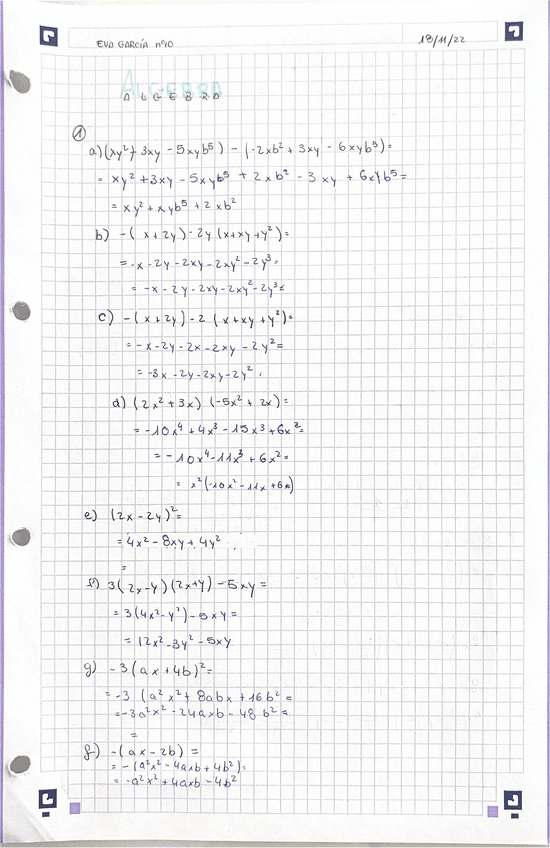 EVA GARCÍA nº10
18/11/22
ALGEBRA
ALGEBRA
1
a) (xy² + 3xy - 5xyb⁵) - (-2xb² + 3xy - 6xyb⁵) =
= xy² + 3xy - 5xyb⁵ + 2xb² - 3xy + 6xyb⁵ =
= xy² + xyb⁵ + 2xb²
b) -(x + 2y) - 2y (x + xy + y²) =
= -x - 2y - 2xy - 2xy² - 2y³ =
= -x - 2y - 2xy - 2xy² - 2y³ =
c) -(x + 2y) - 2 (x + xy + y²) =
= -x - 2y - 2x - 2xy - 2y² =
= -3x - 2y - 2xy - 2y².
d) (2x² + 3x) (-5x² + 2x) =
= -10x⁴ + 4x³ - 15x³ + 6x² =
= -10x⁴ - 11x³ + 6x² =
= x² (-10x² - 11x + 6)
e) (2x - 2y)² =
= 4x² - 8xy + 4y²
=
f) 3(2x - y)(2x + y) - 5xy =
= 3(4x² - y²) - 5xy =
= 12x² - 3y² - 5xy
g) -3(ax + 4b)² =
= -3 (a²x² + 8abx + 16b² =
= -3a²x² - 24axb - 48b² =
=
f) -(ax - 2b) =
= -(a²x² - 4axb + 4b²) =
= -a²x² + 4axb - 4b²